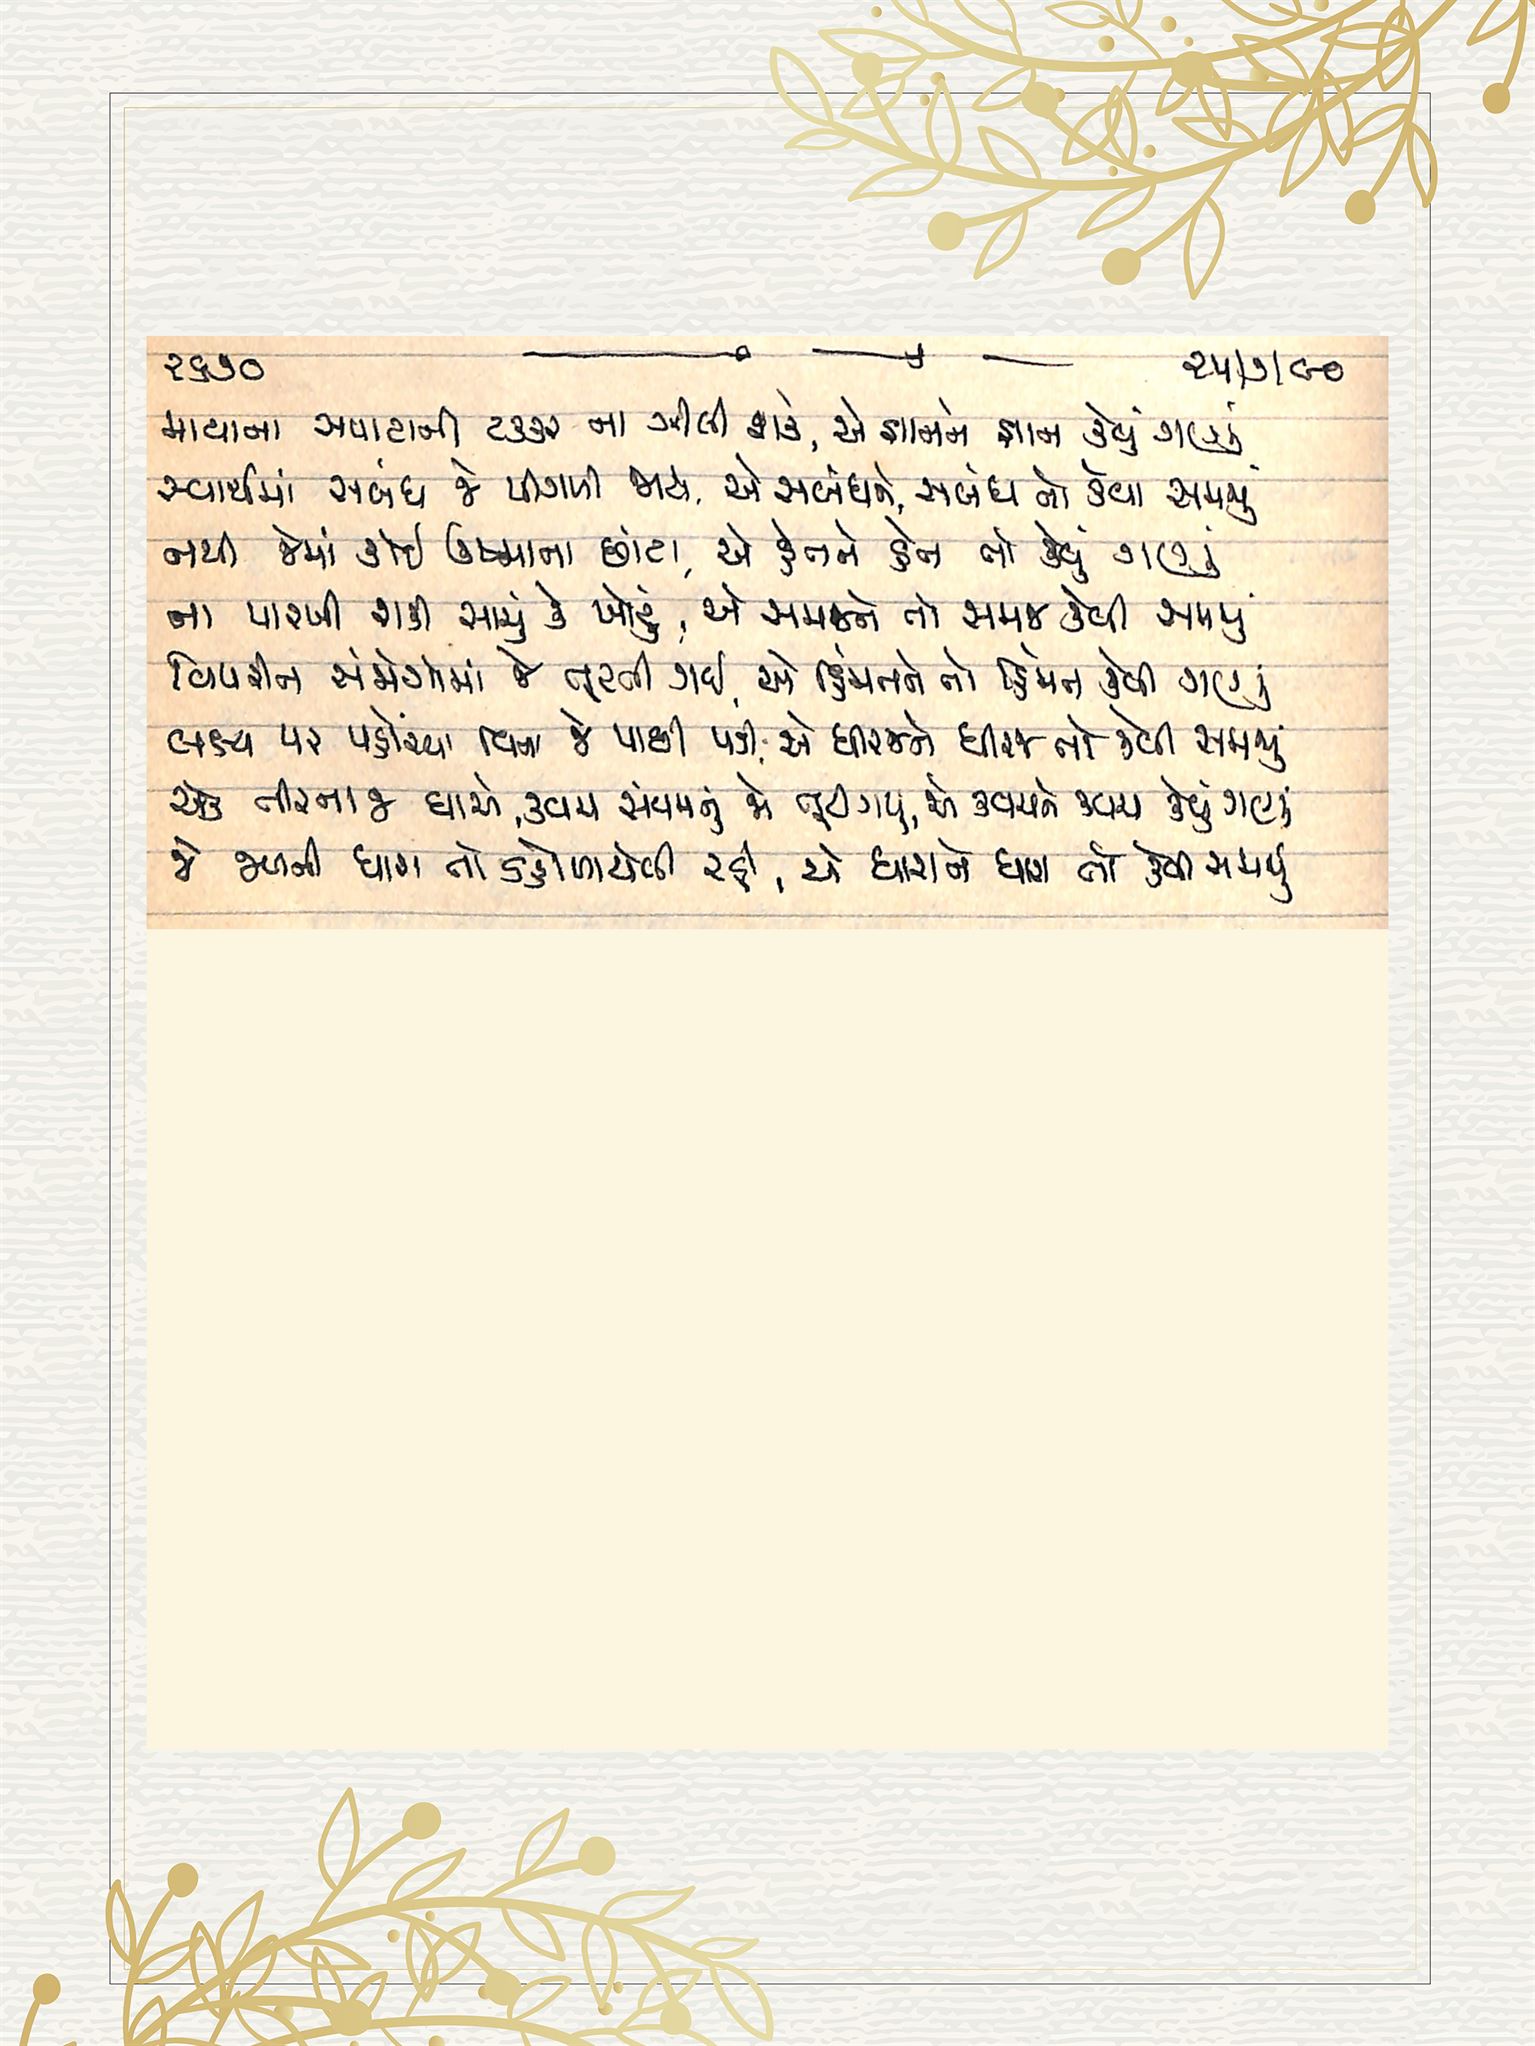 ૨૬૭૦ ૨૫/૭/૯૦
માયાના સપાટાની ટક્કર ના ઝીલી શકે, એ જ્ઞાનને જ્ઞાન કેવું ગણવું
સ્વાર્થમાં સબંધ જે પીગળી જાય, એ સબંધને, સબંધ તો કેવા સમજવું
નથી જેમાં કોઈ ઉષ્માના છાંટા, એ હેતને હેત તો કેવું ગણવું
ના પારખી શકી સાચું કે ખોટું, એ સમજને તો સમજ કેવી સમજવું
વિપરીત સંજોગોમાં જે તૂટતી ગઈ, એ હિંમતને તો હિંમત કેવી ગણવું
લક્ષ્ય પર પહોંચ્યા વિના જે પાછી પડી, એ ધીરજને ધીરજ તો કેવી સમજવું
એક તીરના જ ઘાએ, કવચ સંયમનું જો તૂટી ગયું, એ કવચને કવચ કેવું ગણવું
જે જળની ધારા તો ડહોળાયેલી રહી, એ ધારાને ધારા તો કેવી સમજવું